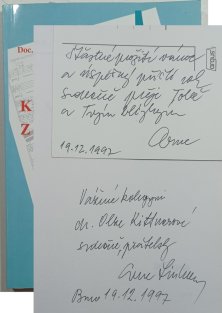 Doc.
K
Z
Šťastné prožití vánoc
a úspěšný příští rok
srdečně přeje Tobě
a Tvým blízkým
Arne
19.12.1997
Vážené kolegyni
dr. Olze Kittnarové
srdečně, přátelsky
Arne
Brno 19.12.1997